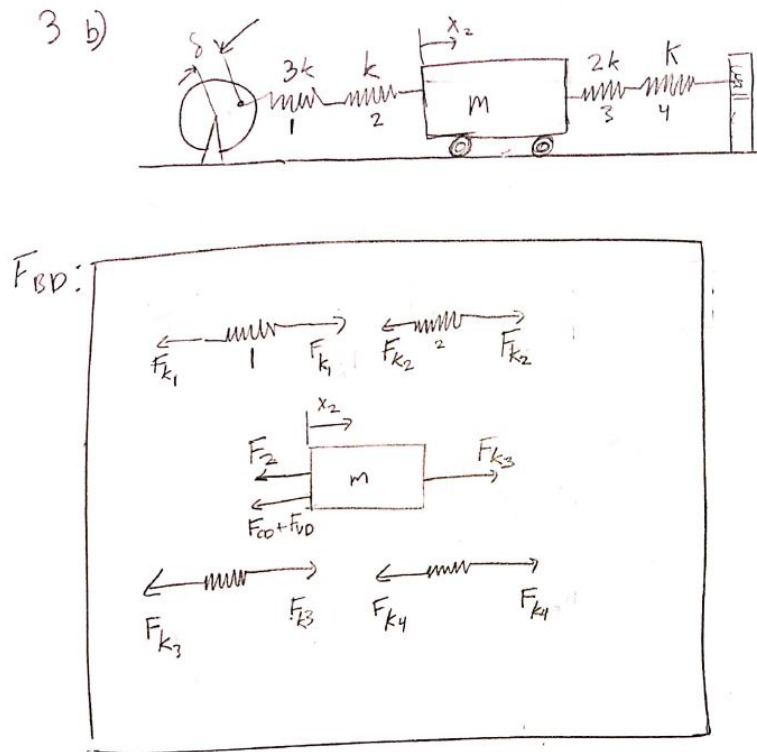 3 b)
δ
x₂
3k k 2k K
m
1 2 3 4
FBD:
F_k₁ 1 F_k₁ F_k₂ 2 F_k₂
x₂
F₂ m F_k₃
F_CD + F_VD
F_k₃ F_k₃ F_k₄ F_k₄